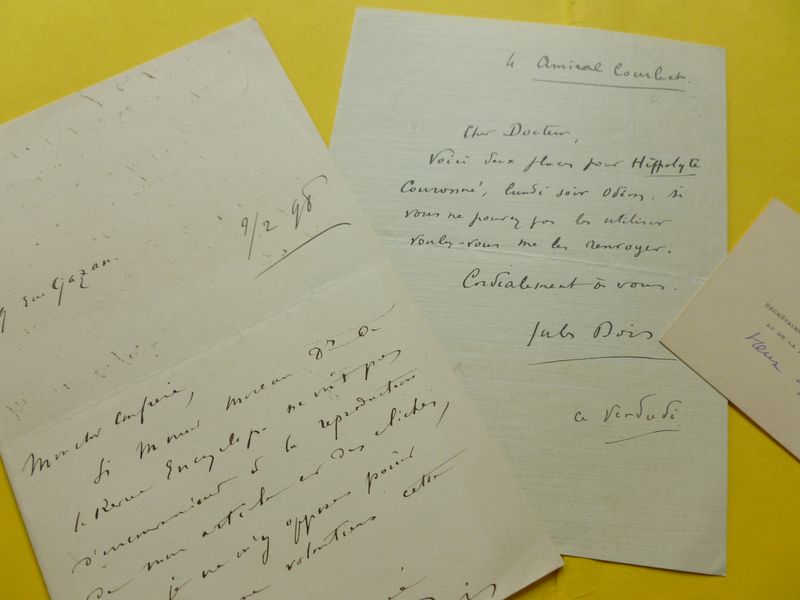 9/2 98
Mon cher confrère,
Si Monsieur Moreau Dr de
la Revue Encyclop. ne voit pas
d'inconvénient à la reproduction
de mon article et des clichés,
je ne m'y oppose point
volontiers cette
4 Amiral Courbet.
Cher Docteur,
Voici deux places pour Hippolyte
Couronné, lundi soir Odéon. Si
vous ne pouvez pas les utiliser
voulez-vous me les renvoyer.
Cordialement à vous.
Jules Bois
ce Vendredi
SECRÉTAIRE
ET DE LA